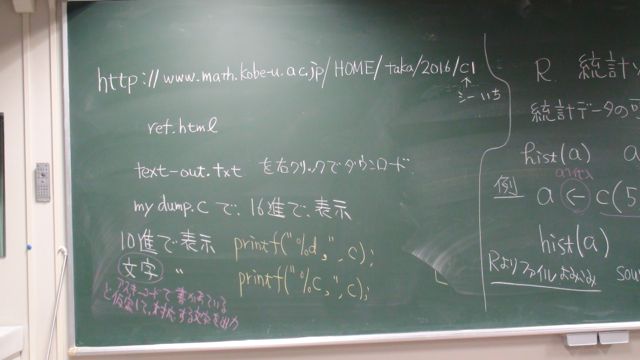 http://www.math.kobe-u.ac.jp/HOME/taka/2016/c1
↑
シー いち
ref.html
text-out.txt を右クリックでダウンロード
mydump.c で, 16進で表示
10進で表示 printf("%d,", c);
文字 〃 printf("%c,", c);
アスキーコードで書かれている
と仮定して, 対応する文字を出力
R 統計
統計データの
hist(a) a
例 a ← c(5
hist(a)
Rよりファイルよみこみ sou